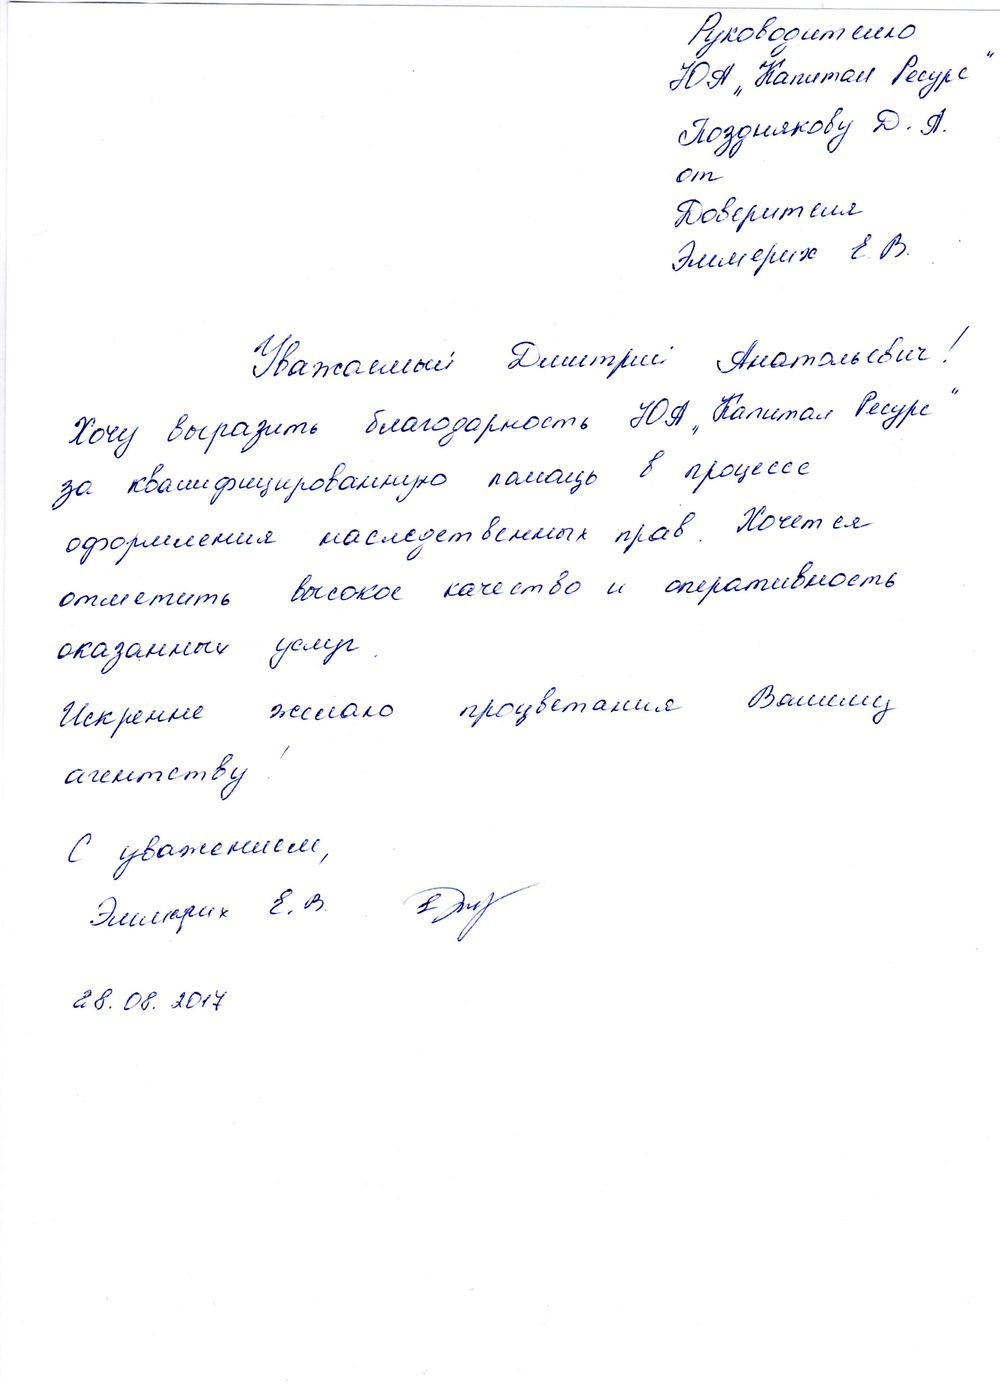 Руководителю
ЮА „Капитал Ресурс"
Позднякову Д. А.
от
Доверителя
Эммерих Е. В.
Уважаемый Дмитрий Анатольевич!
Хочу выразить благодарность ЮА „Капитал Ресурс"
за квалифицированную помощь в процессе
оформления наследственных прав. Хочется
отметить высокое качество и оперативность
оказанных услуг.
Искренне желаю процветания Вашему
агентству!
С уважением,
Эммерих Е. В.
28.08.2017